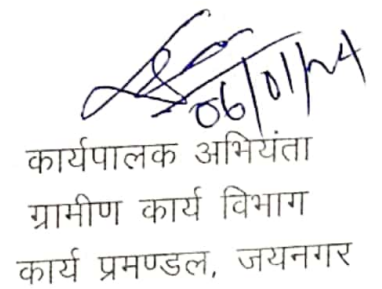 06/01/24
कार्यपालक अभियंता
ग्रामीण कार्य विभाग
कार्य प्रमण्डल, जयनगर